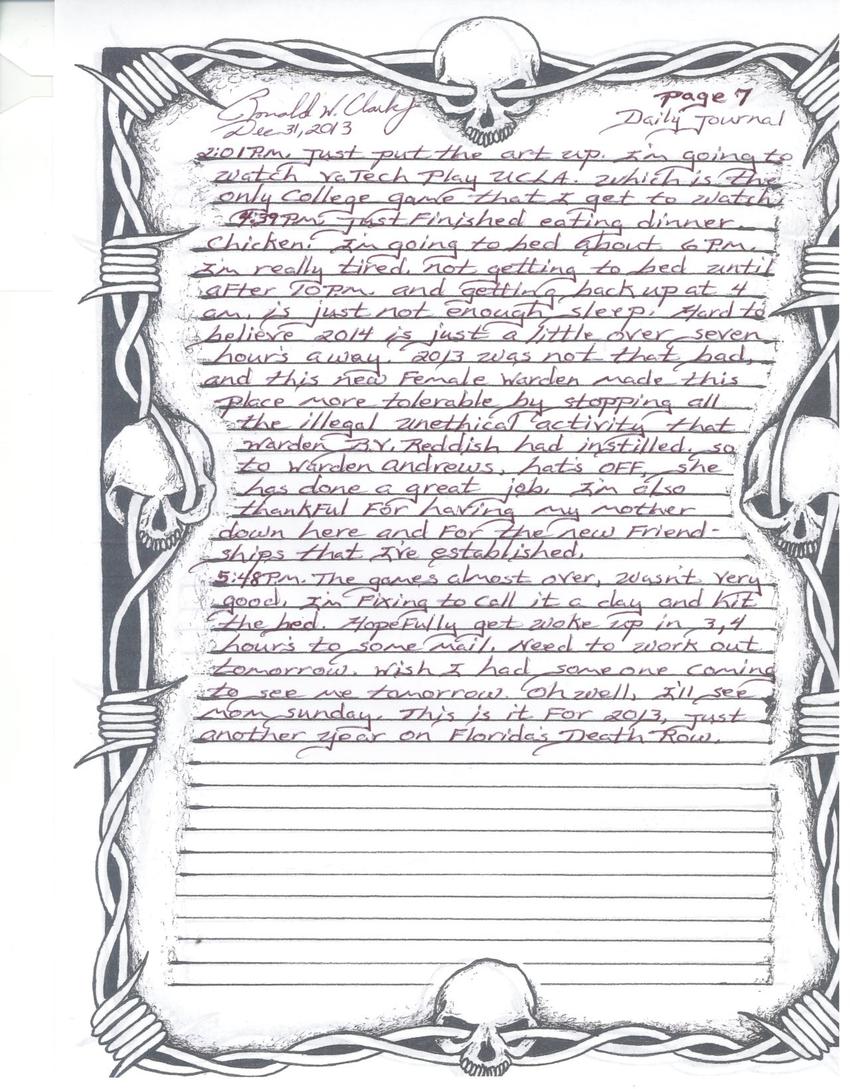 Ronald W. Clark Jr
page 7
Dec 31, 2013
Daily Journal
2:01 P.M. Just put the art up. I'm going to
watch VaTech Play UCLA. Which is the
only College game that I get to watch.
4:39 P.M. Just Finished eating dinner.
Chicken. I'm going to bed about 6 P.M.
I'm really tired, not getting to bed until
after 10 P.M. and getting back up at 4
am. is just not enough sleep. Hard to
believe 2014 is just a little over seven
hour's away. 2013 was not that bad,
and this new Female Warden made this
place more tolerable by stopping all
the illegal unethical activity that
Warden B.V. Reddish had instilled. so
to Warden Andrews, hat's OFF, she
has done a great job. I'm also
thankFul For having my mother
down here and For the new Friend-
ships that I've established.
5:48 P.M. The games almost over, wasn't very
good, I'm Fixing to call it a day and hit
the bed. HopeFully get woke up in 3,4
hour's to some mail. Need to work out
tomorrow. Wish I had someone coming
to see me tomorrow. Oh well, I'll see
mom sunday. This is it For 2013, Just
another year on Florida's Death Row.